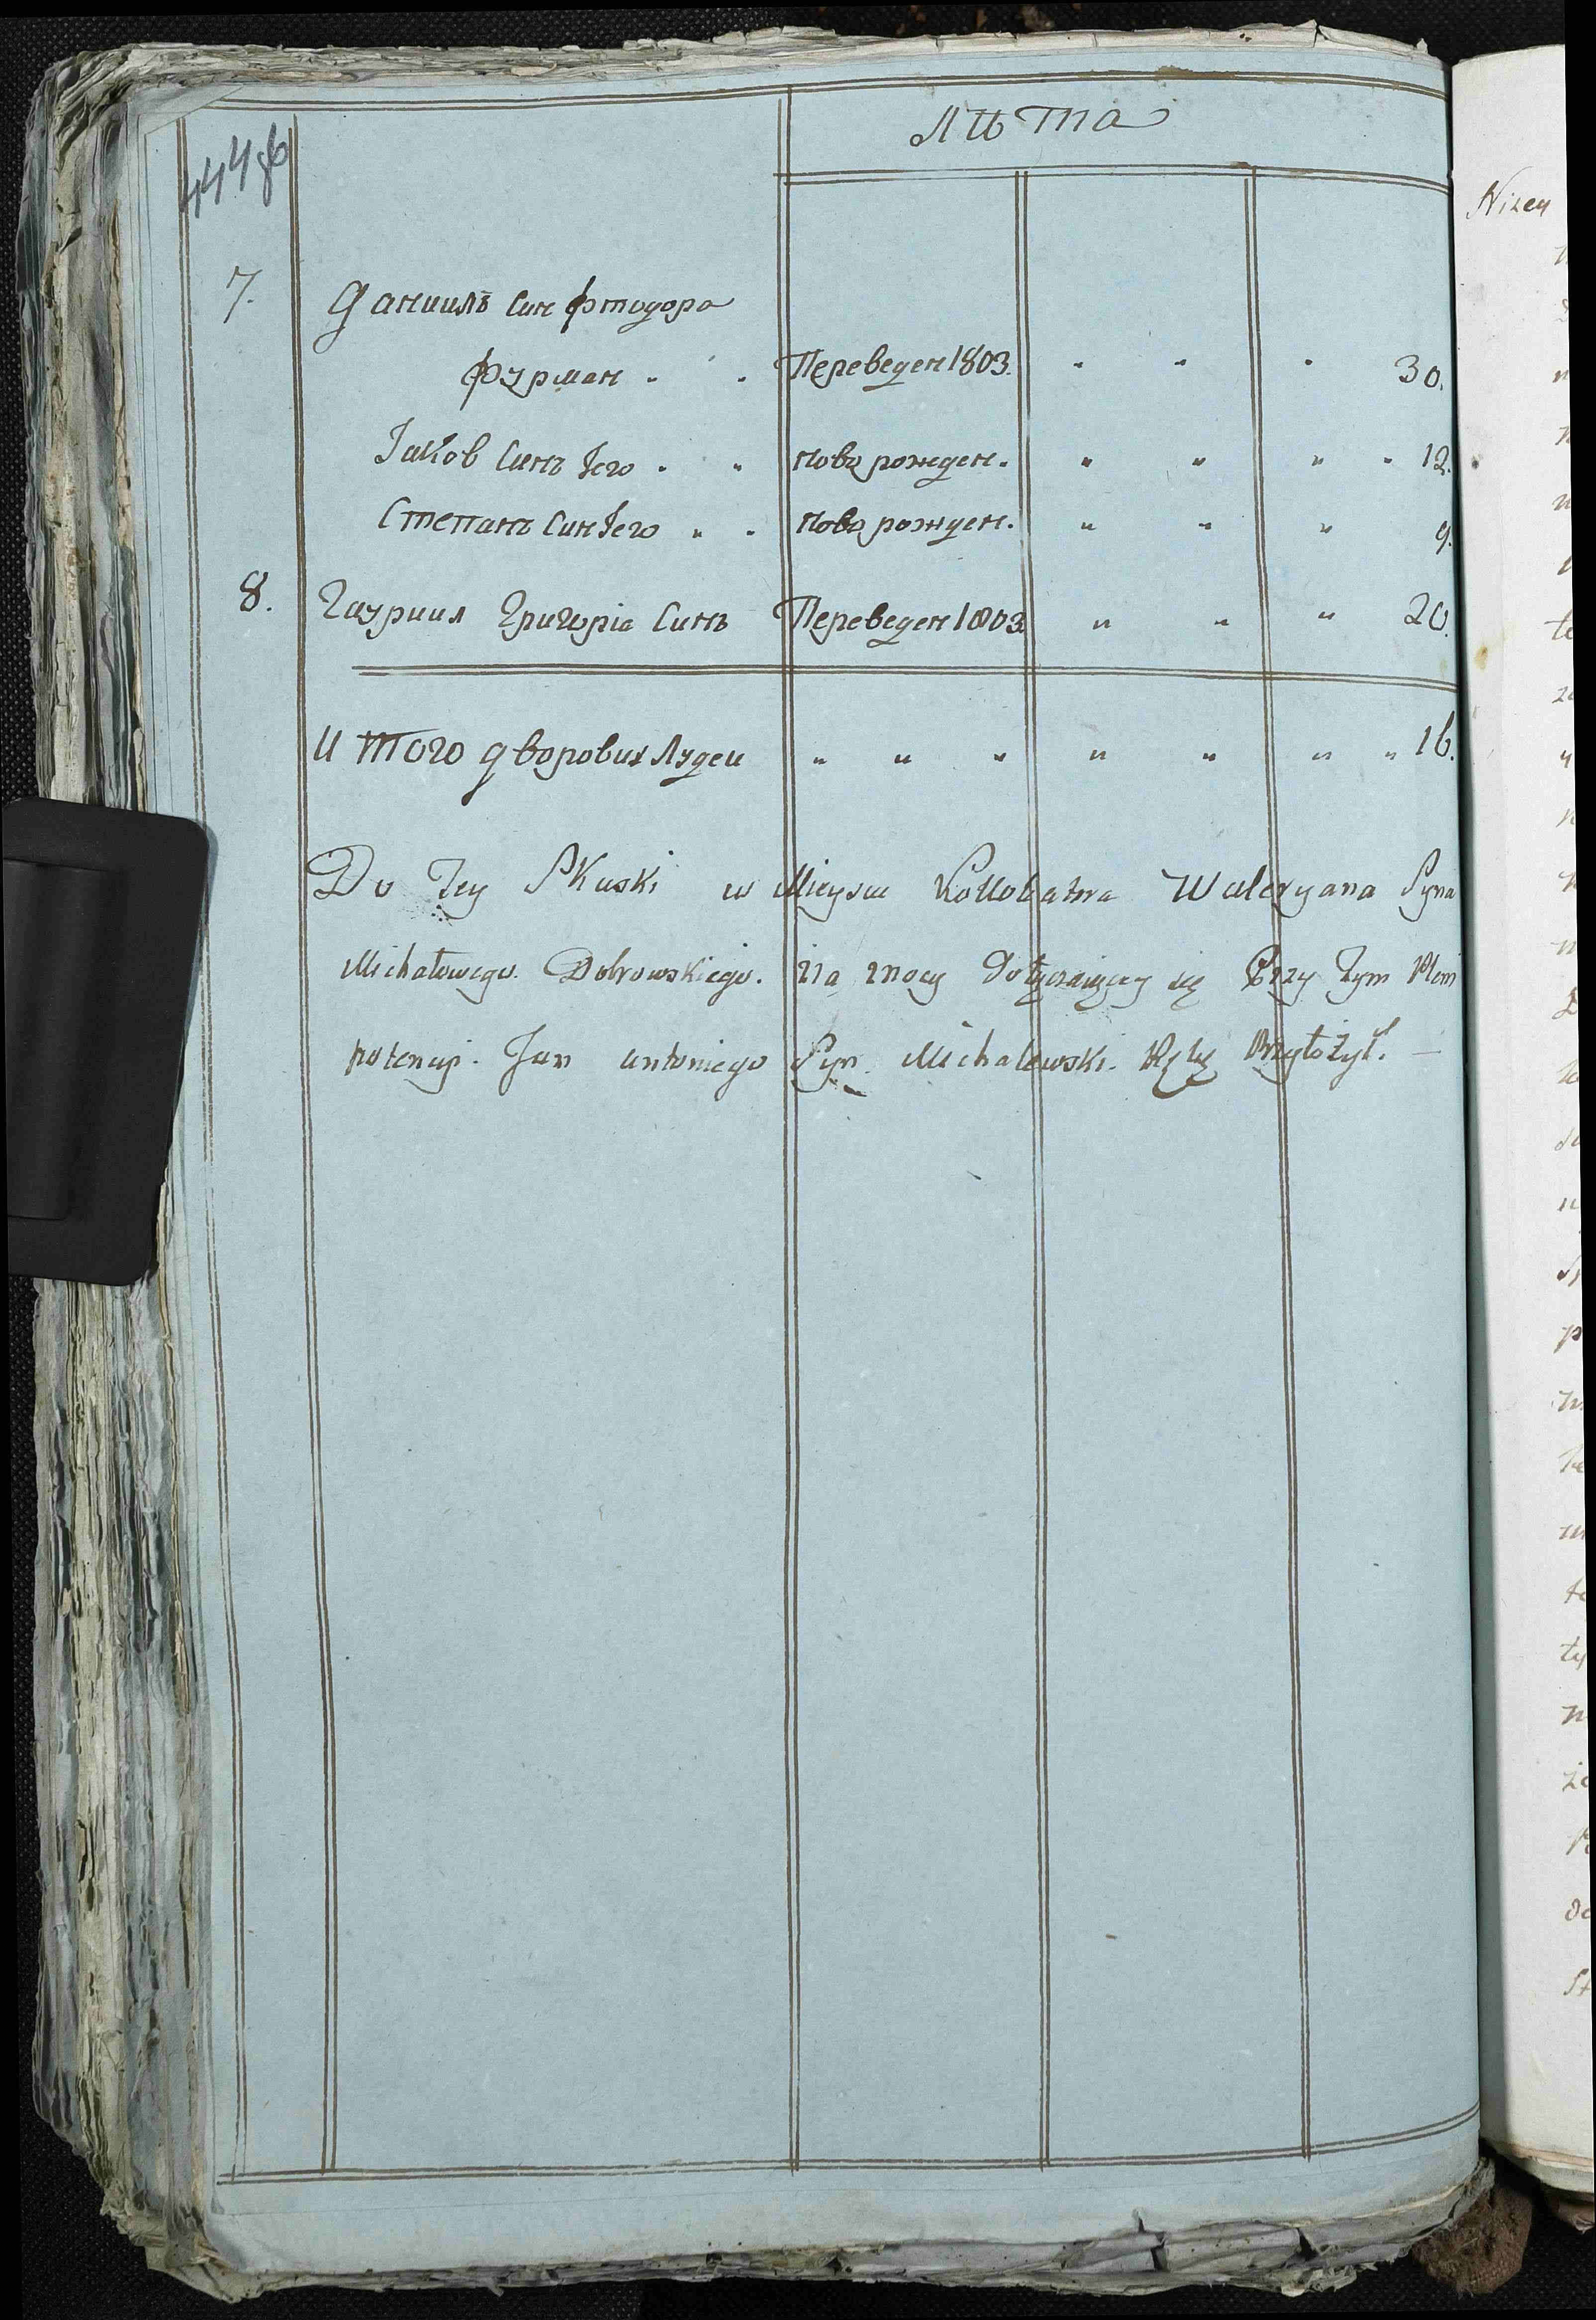 444 об
Лѣта
7. Даниилъ Син Фтодора
Фурман " " Переведен 1803. " " " 30.
Іаков Синъ Іего " " новорожден. " " " " 12.
Степанъ Син Іего " " новорожден. " " " 9.
8. Гауриил Григоріа Синъ Переведен 1803 " " " 20.
И того дворових Лудеи " " " " " " " 16.
Do Tey Skaski w Mieyscu Kollobatora Waleryana Syna
Michałowego Dobrowskiego. na mocy dotyczaiącey się Przy Tym Pleni
potencij. Jan Antoniego Syn Michalewski. Rękę Przyłożył. —
Nizey